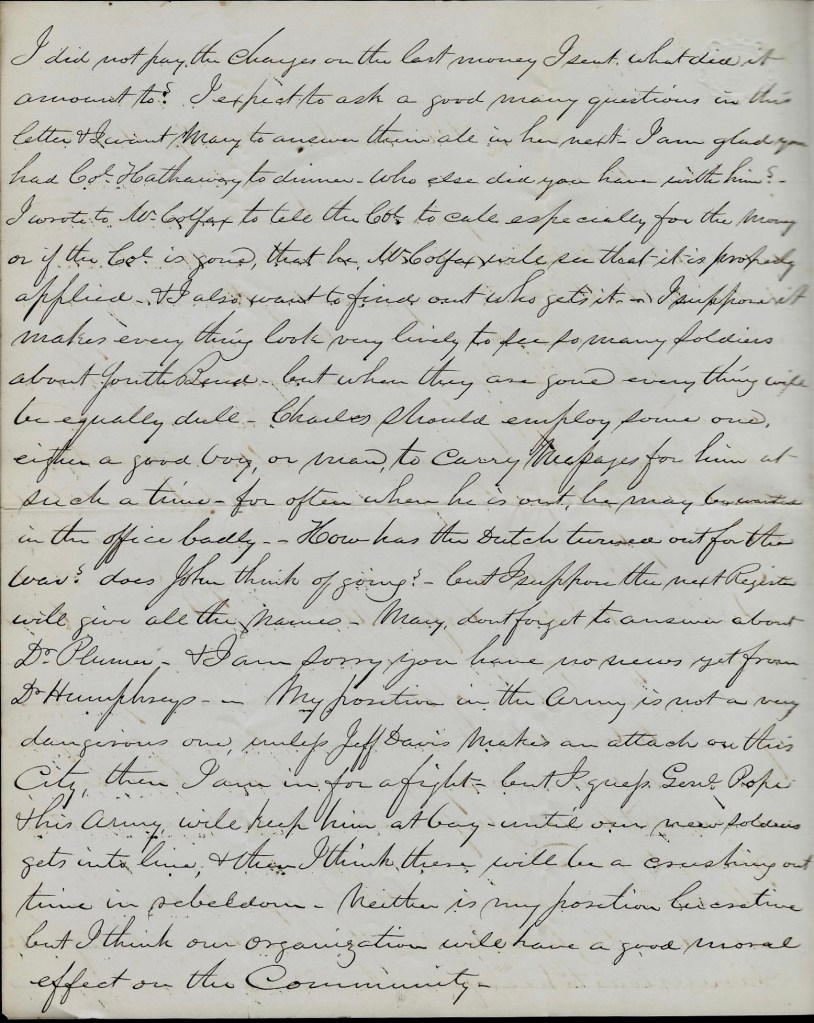 I did not pay the charges on the last money I sent. what did it
amount to? I expect to ask a good many questions in this
letter & I want Mary to answer them all in her next – I am glad you
had Col. Hathaway to dinner – Who else did you have with him? –
I wrote to Mr. Colfax to tell the Col. to call especially for the money
or if the Col. is gone, that he, Mr Colfax will see that it is properly
applied – & I also want to find out who gets it. – I suppose it
makes everything look very lively to see so many soldiers
about South Bend – but when they are gone every thing will
be equally dull – Charles should employ some one,
either a good boy, or man, to carry Messages for him at
such a time – for often when he is out, he may be wanted
in the office badly – – How has the Dutch turned out for the
war? does John think of going? – but I suppose the next Register
will give all the names – Mary, dont forget to answer about
Dr. Plumer – & I am sorry you have no news yet from
Dr Humphreys – – My position in the Army is not a very
dangerous one, unless Jeff Davis makes an attack on this
City, then I am in for a fight – but I guess Genl. Pope
& his Army, will keep him at bay – until our new soldiers
gets into line, & then I think there will be a crushing out
time in rebeldom – Neither is my position lucrative
but I think our organization will have a good moral
effect on the Community –